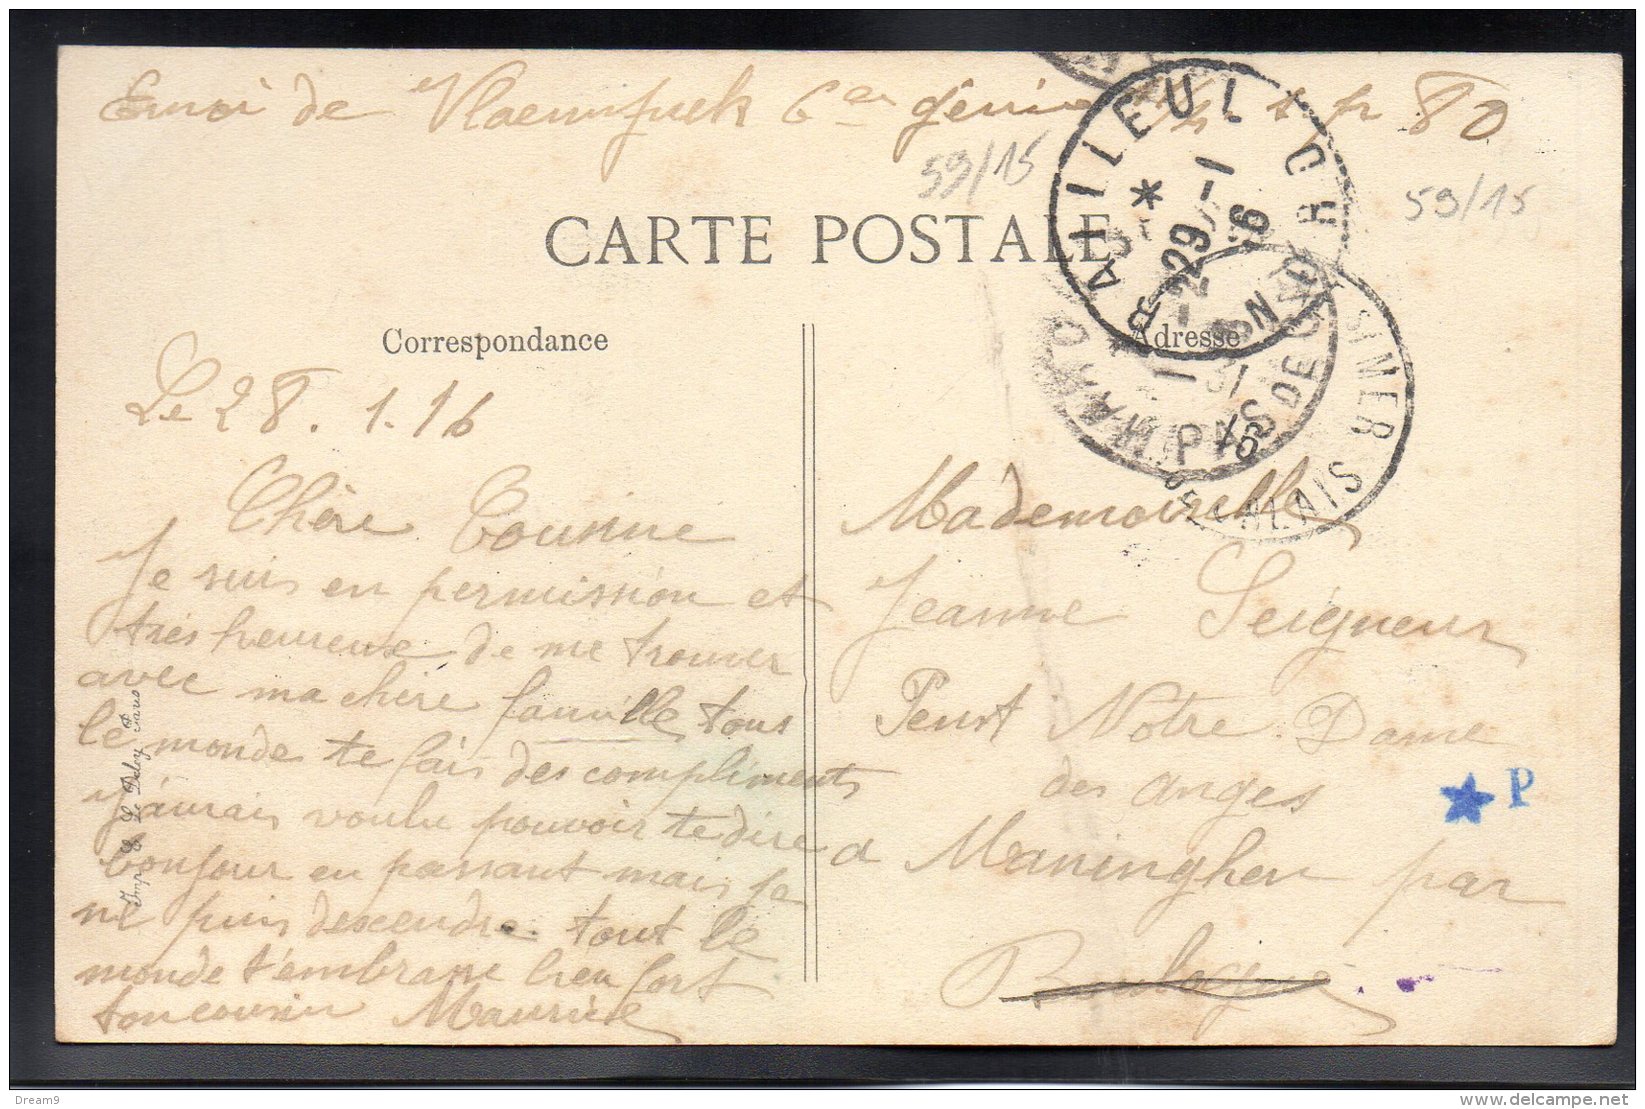 Envoi de Vlaempuck 6em génie
80
59/15
59/15
CARTE POSTALE
BAILLEUL
*
29 - 1
16
PAS DE CALAIS
SAMER
PAS DE CALAIS
Correspondance
Adresse
Le 28.1.16
Chère Cousine
Je suis en permission et
très heureuse de me trouver
avec ma chère famille, tous
le monde te fais des compliments
J'aurais voulu pouvoir te dire
bonjour en passant mais je
ne puis descendre. tout le
monde t'embrasse bien fort
ton cousin Maurice
Imp. E. Le Deley Paris
Mademoiselle
Jeanne Seigneur
Penst Notre Dame
des anges
a Maninghen par
Boulogne
P
Dream9
www.delcampe.net